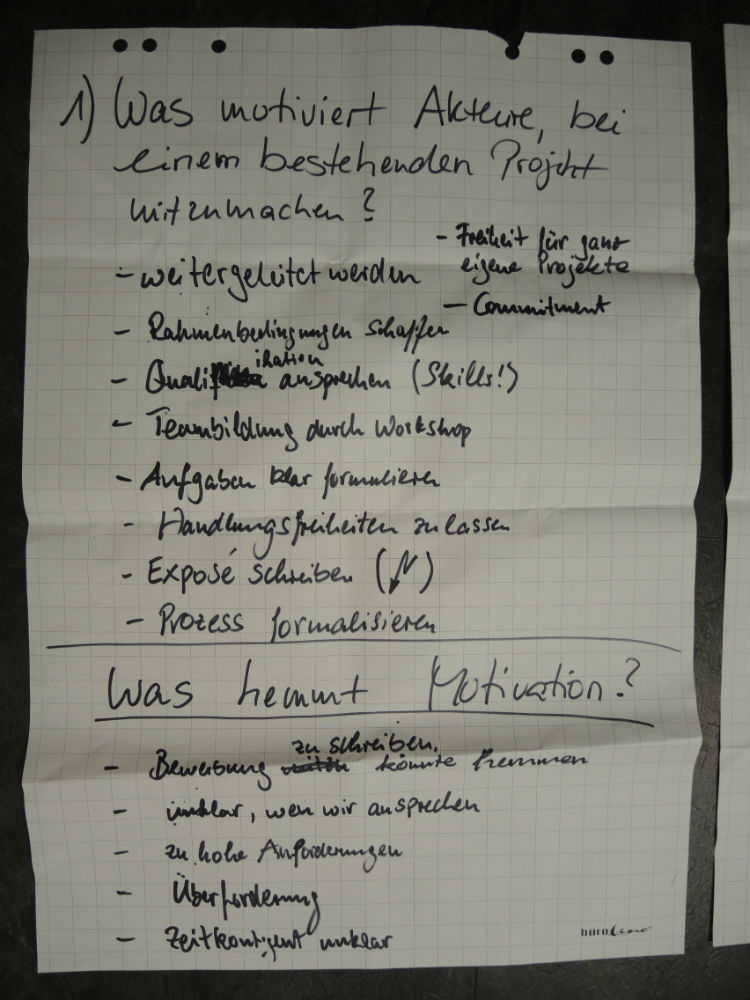 1) Was motiviert Akteure, bei
einem bestehenden Projekt
mitzumachen?
- Freiheit für ganz
eigene Projekte
- Commitment
- weitergeleitet werden
- Rahmenbedingungen schaffen
- Qualifikation ansprechen (Skills!)
- Teambildung durch Workshop
- Aufgaben klar formulieren
- Handlungsfreiheiten zulassen
- Exposé schreiben ( )
- Prozess formalisieren
Was hemmt Motivation?
- Bewerbung zu schreiben, könnte hemmen
- unklar, wen wir ansprechen
- zu hohe Anforderungen
- Überforderung
- Zeitkontigent unklar
büroLine